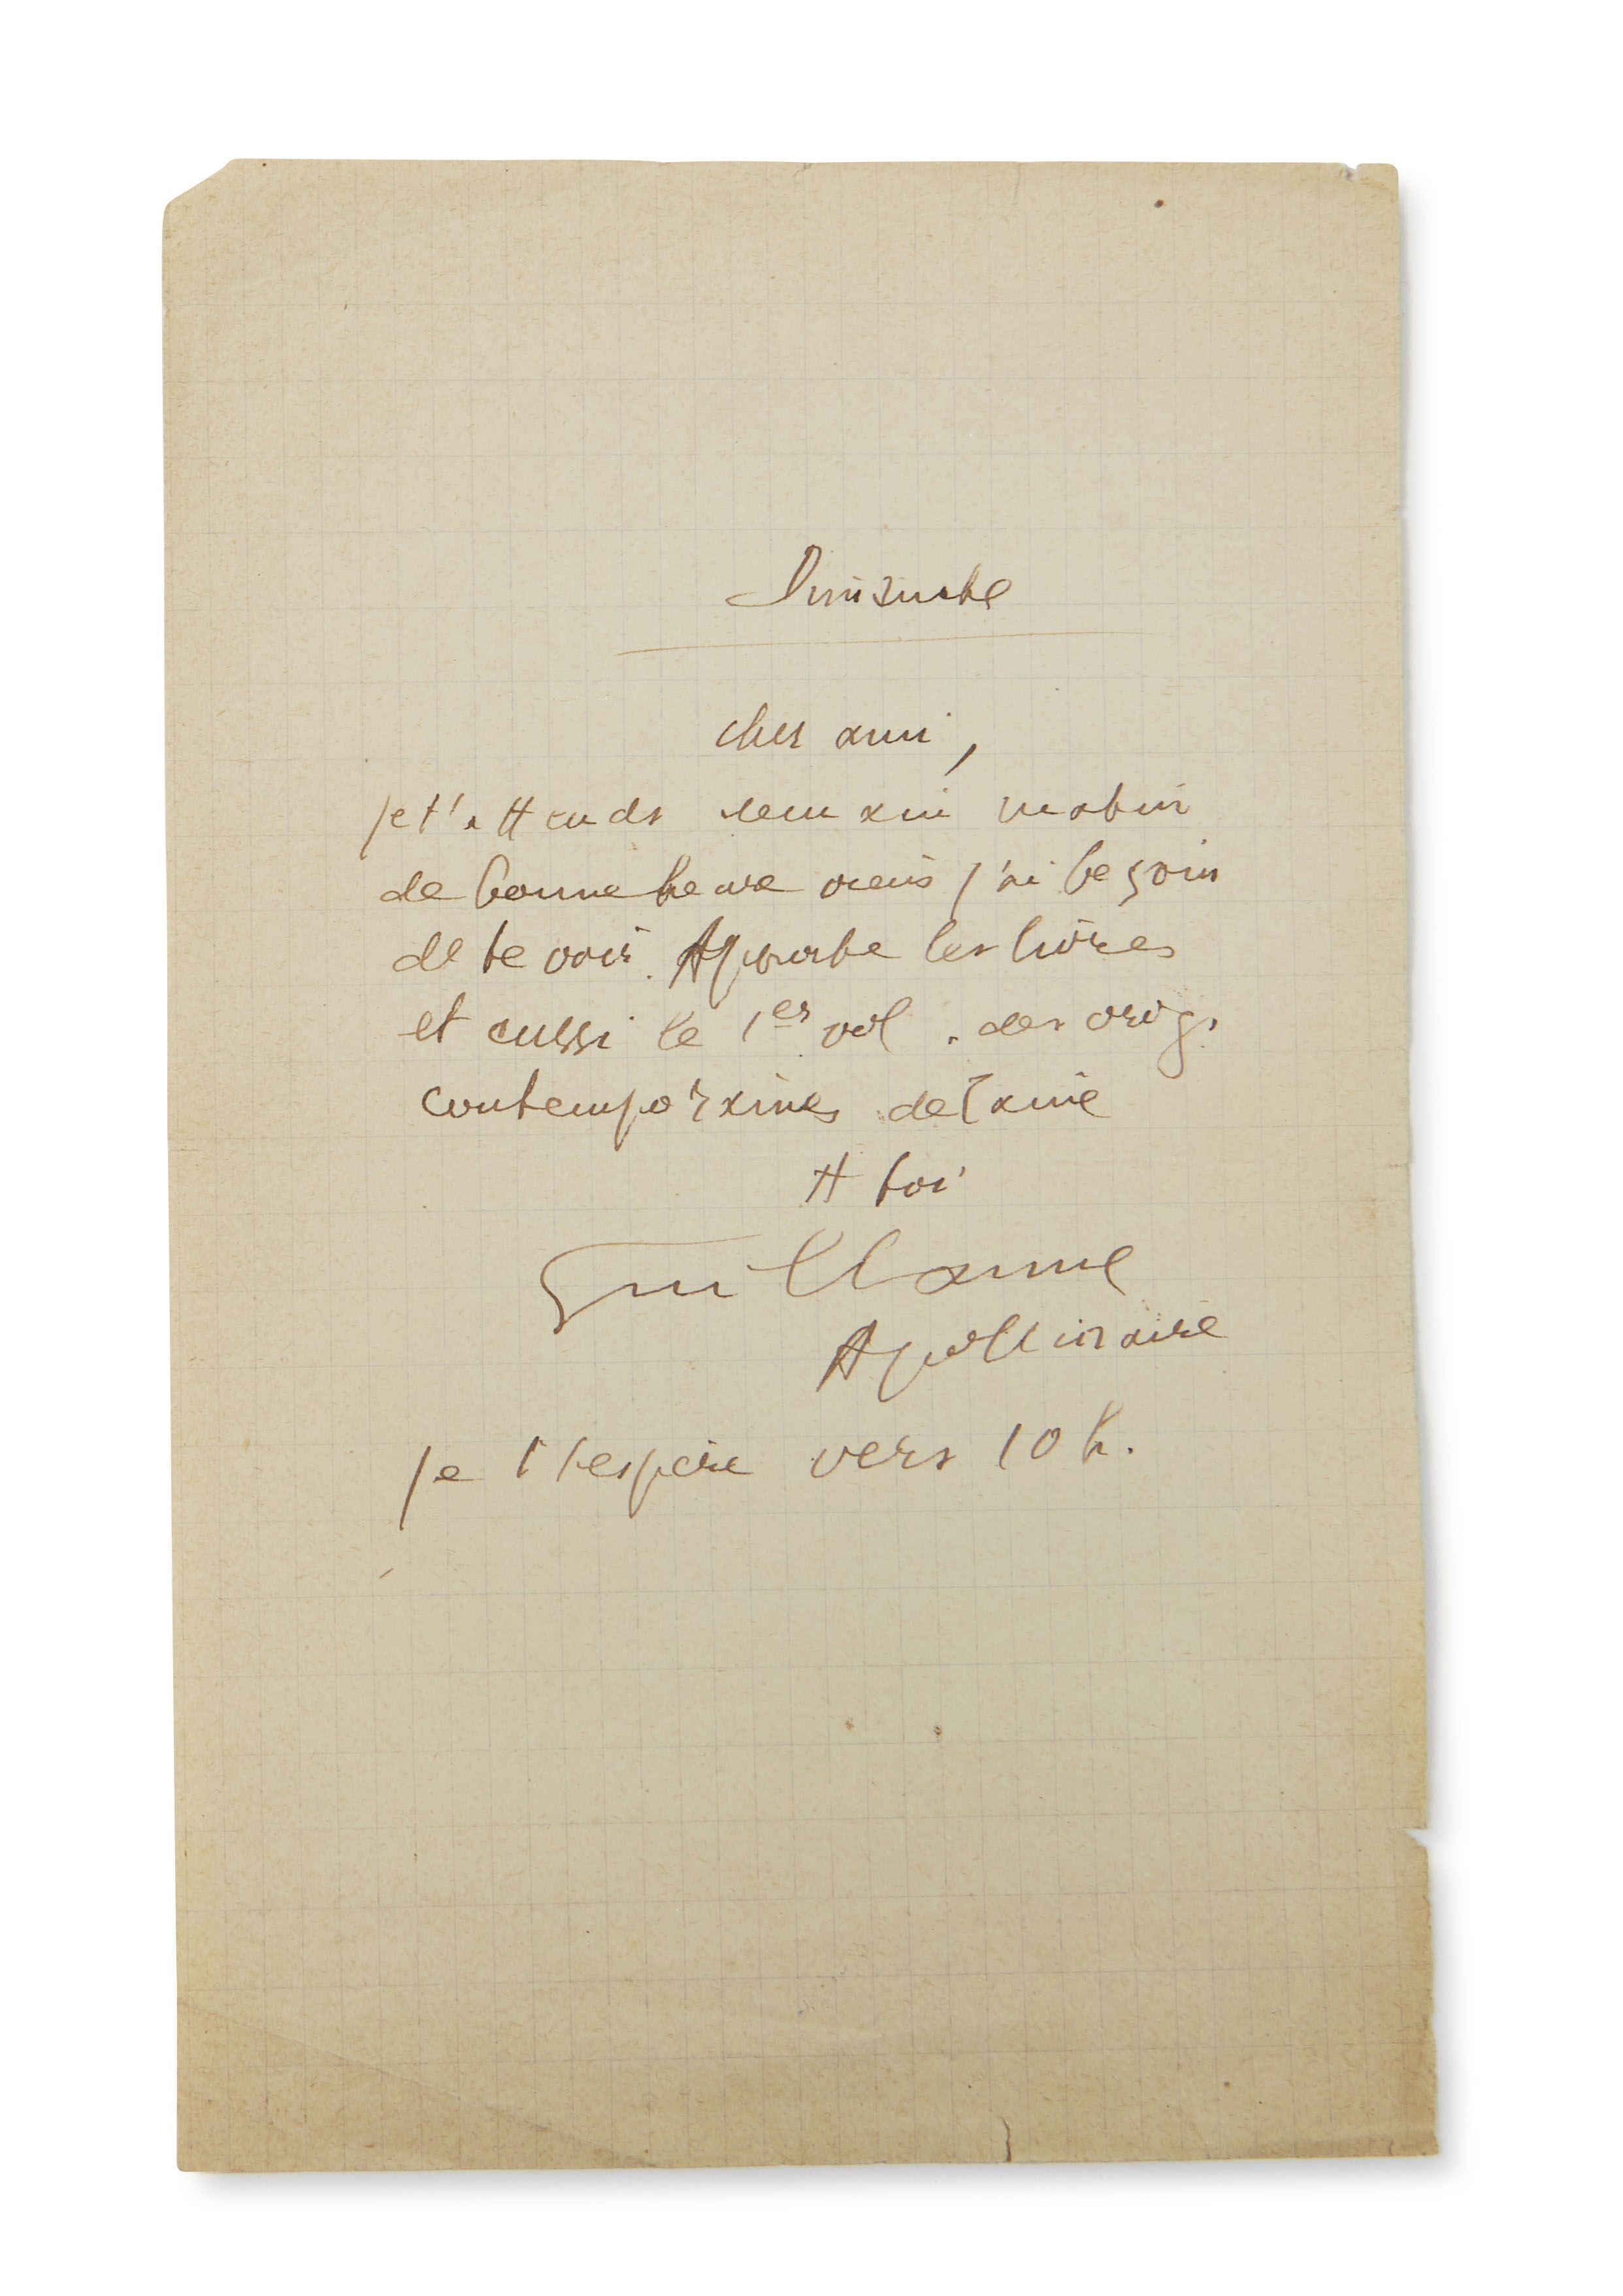 Dimanche
cher ami,
je t'attends demain matin
de bonne heure viens j'ai besoin
de te voir. Apporte les livres
et aussi le 1er vol. des orig.
contemporaines de Taine
A toi
Guillaume
Apollinaire
je t'espère vers 10 h.